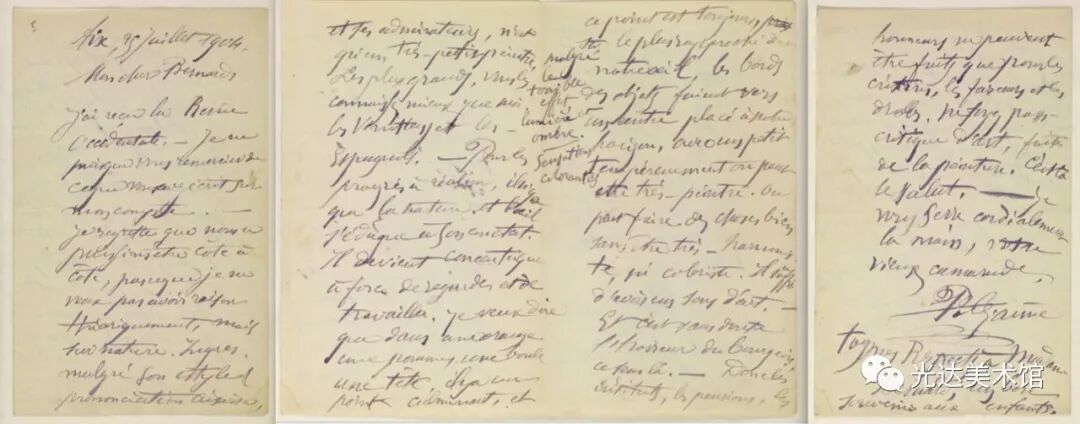 Aix, 25 Juillet 1904.
Mon cher Bernard
J'ai reçu la Revue
Occidentale. — Je ne
puis que vous remercier de
ce que vous avez écrit sur
mon compte. —
Je regrette que nous ne
puissions être côte à
côte, parce que je ne
veux pas avoir raison
théoriquement, mais
sur nature. Ingres,
malgré son estyle
prononciation aixoise,
et ses admirateurs, n'est
qu'un très-petit peintre.
Les plus grands, vous les
connaissez mieux que moi,
les Vénitiens et les —
Espagnols. — Pour les
progrès à réaliser, il n'y a
que la nature, et l'œil
s'éduque à son contact.
Il devient concentrique
à force de regarder et de
travailler. Je veux dire
que dans une orange
une pomme, une boule
une tête, il y a un
point culminant, et
ce point est toujours
malgré
le
terrible
effet
lumière
ombre.
sensations
colorantes
le plus rapproché de
notre œil, les bords
des objets fuient vers
un centre placé à notre
horizon. avec un petit
tempérament on peut
être très-peintre. On
peut faire des choses bien
sans être très-harmonis-
te, ni coloriste. Il suffit
d'avoir un sens d'art. —
Et c'est sans doute
l'horreur du bourgeois,
ce sens-là. — Donc les
instituts, les pensions, les
honneurs ne peuvent
être faits que pour les
crétins, les farceurs et les
drôles. Ne soyez pas
critique d'art, faites
de la peinture. C'est là
le salut. — Je
vous serre cordialement
la main, votre
vieux camarade,
P Cezanne
toujours Respects à Madame
Bernard,
souvenir aux enfants.
光达美术馆